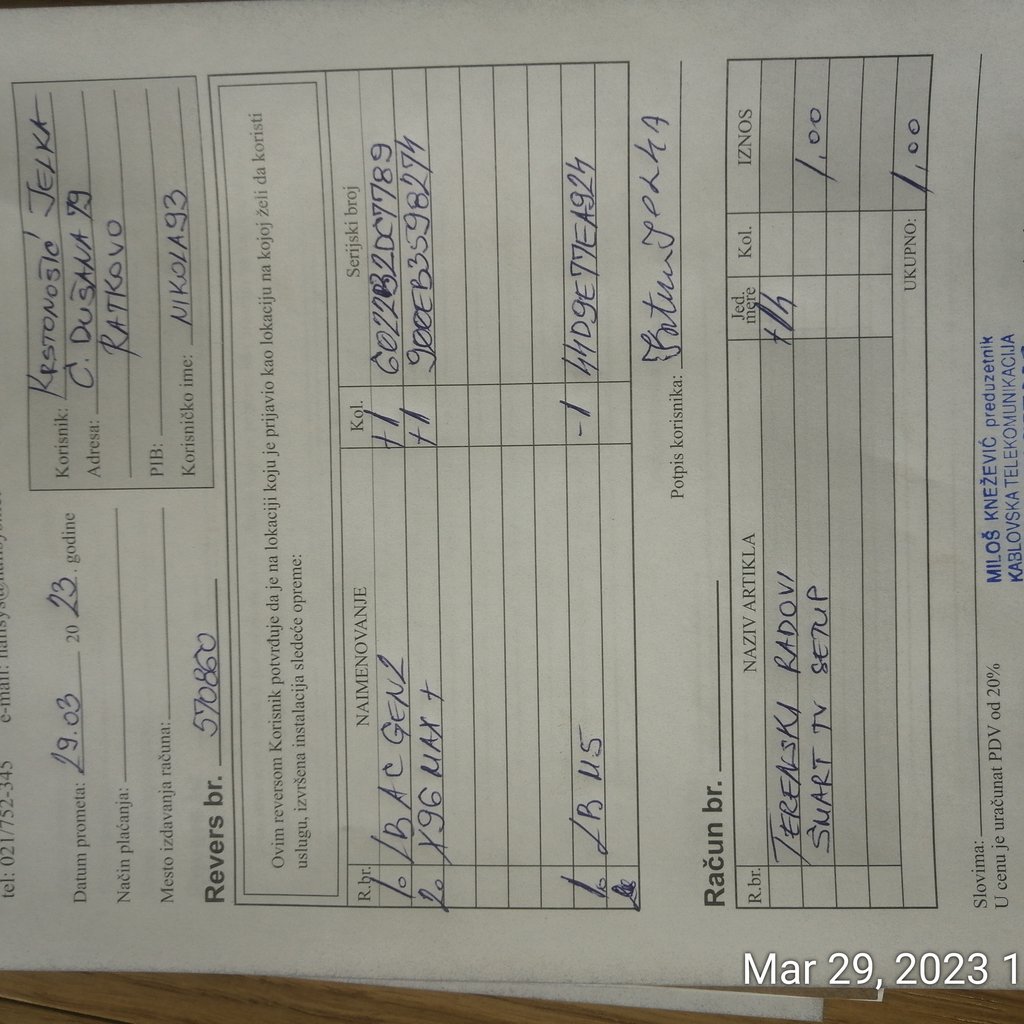 tel: 021/752-345 e-mail:
Datum prometa: 29.03 20 23. godine
Način plaćanja:
Mesto izdavanja računa:
Korisnik: KRSTONOŠIĆ JELKA
Adresa: C. DUŠANA 79
RATKOVO
PIB:
Korisničko ime: NIKOLA93
Revers br. 570860
Ovim reversom Korisnik potvrđuje da je na lokaciji koju je prijavio kao lokaciju na kojoj želi da koristi
uslugu, izvršena instalacija sledeće opreme:
R.br. NAIMENOVANJE Kol. Serijski broj
1. LB AC GEN2 +1 6022B2DC7789
2. X96 MAX + +1 900EB3598274
1. LB M5 -1 44D9E77EA924
Potpis korisnika:
Račun br.
R.br. NAZIV ARTIKLA Jed. mere Kol. IZNOS
TERENSKI RADOVI
SMART TV SETUP 1,00
UKUPNO: 1,00
Slovima:
U cenu je uračunat PDV od 20%
MILOŠ KNEŽEVIĆ preduzetnik
KABLOVSKA TELEKOMUNIKACIJA
Mar 29, 2023 1